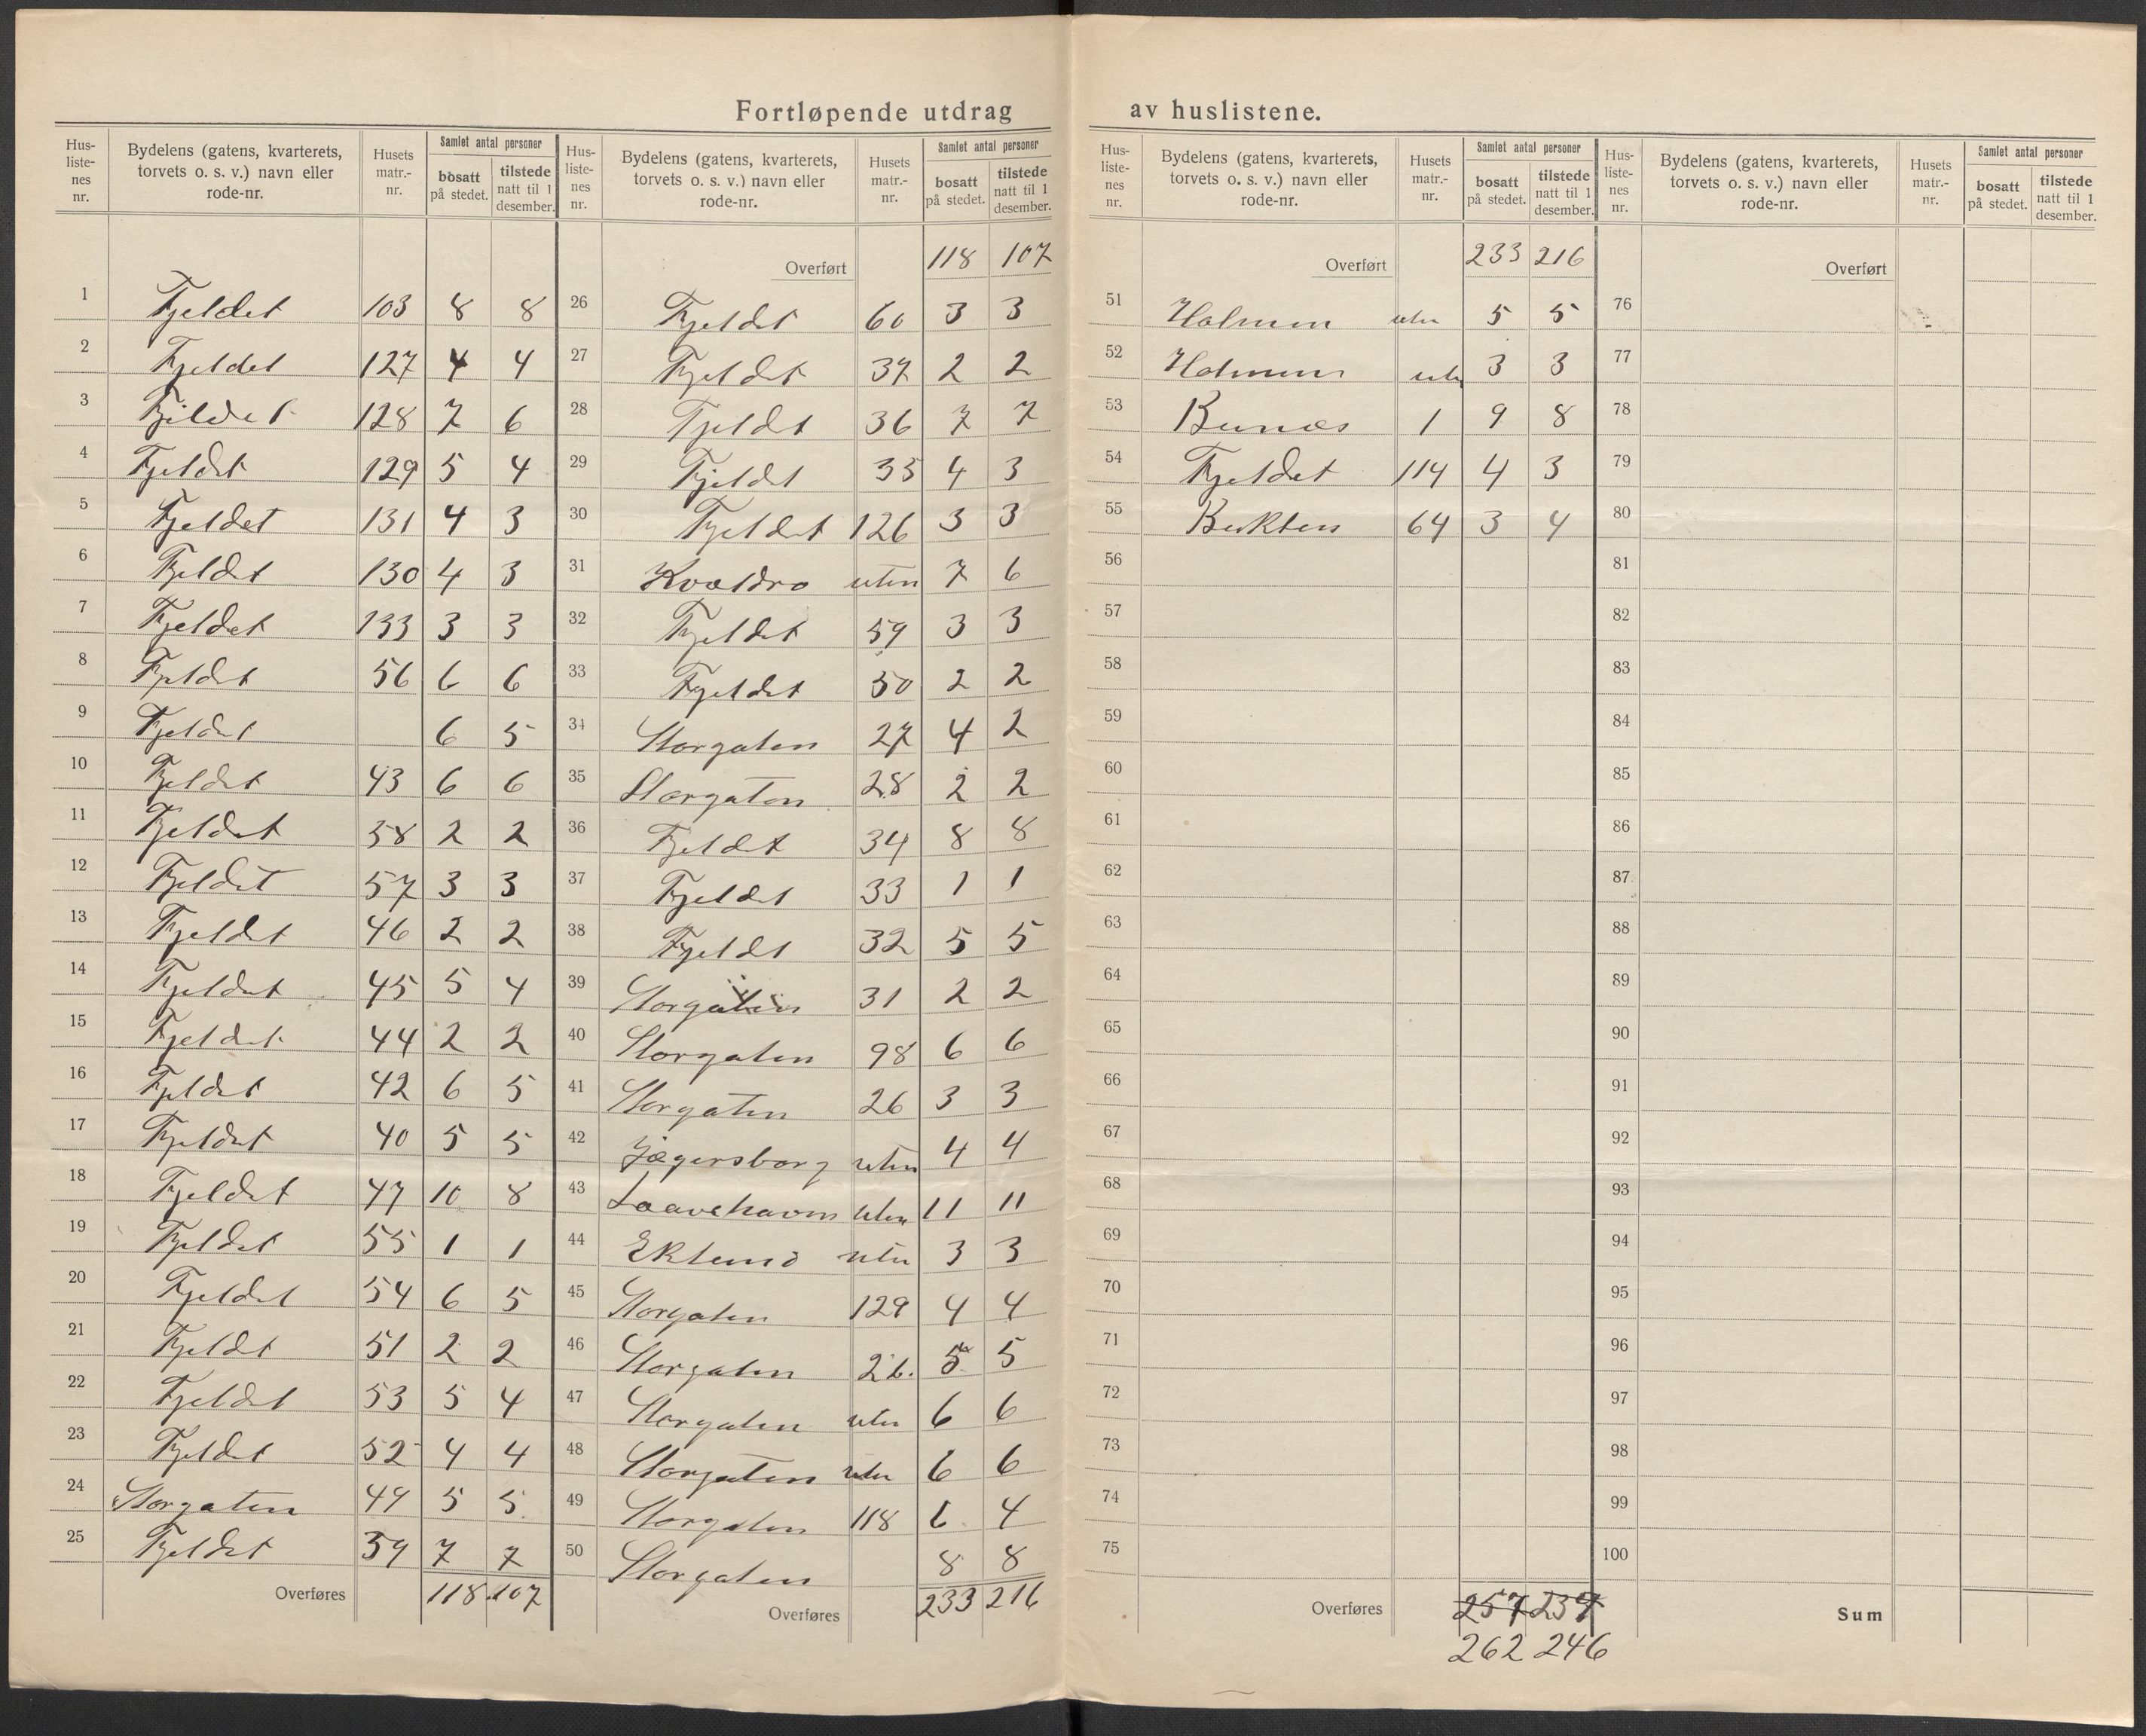 Fortløpende utdrag av huslistene.
Hus-listenes nr. | Bydelens (gatens, kvarterets, torvets o. s. v.) navn eller rode-nr. | Husets matr.-nr. | Samlet antal personer | bosatt på stedet. | tilstede natt til 1 desember.
1 Fjeldet 103 8 8
2 Fjeldet 127 4 4
3 Fjeldet 128 7 6
4 Fjeldet 129 5 4
5 Fjeldet 131 4 3
6 Fjeldet 130 4 3
7 Fjeldet 133 3 3
8 Fjeldet 56 6 6
9 Fjeldet 6 5
10 Fjeldet 43 6 6
11 Fjeldet 58 2 2
12 Fjeldet 57 3 3
13 Fjeldet 46 2 2
14 Fjeldet 45 5 4
15 Fjeldet 44 2 2
16 Fjeldet 42 6 5
17 Fjeldet 40 5 5
18 Fjeldet 47 10 8
19 Fjeldet 55 1 1
20 Fjeldet 54 6 5
21 Fjeldet 51 2 2
22 Fjeldet 53 5 4
23 Fjeldet 52 4 4
24 Storgaten 49 5 5
25 Fjeldet 39 7 7
Overføres 118 107
Hus-listenes nr. | Bydelens (gatens, kvarterets, torvets o. s. v.) navn eller rode-nr. | Husets matr.-nr. | Samlet antal personer | bosatt på stedet. | tilstede natt til 1 desember.
Overført 118 107
26 Fjeldet 60 3 3
27 Fjeldet 37 2 2
28 Fjeldet 36 7 7
29 Fjeldet 35 4 3
30 Fjeldet 126 3 3
31 Kvældro uten 7 6
32 Fjeldet 59 3 3
33 Fjeldet 50 2 2
34 Storgaten 27 4 2
35 Storgaten 28 2 2
36 Fjeldet 34 8 8
37 Fjeldet 33 1 1
38 Fjeldet 32 5 5
39 Storgaten 31 2 2
40 Storgaten 98 6 6
41 Storgaten 26 3 3
42 Jægersborg uten 4 4
43 Laavehaven uten 11 11
44 Eklund uten 3 3
45 Storgaten 129 4 4
46 Storgaten 26. 5 5
47 Storgaten uten 6 6
48 Storgaten uten 6 6
49 Storgaten 118 6 4
50 Storgaten 8 8
Overføres 233 216
Hus-listenes nr. | Bydelens (gatens, kvarterets, torvets o. s. v.) navn eller rode-nr. | Husets matr.-nr. | Samlet antal personer | bosatt på stedet. | tilstede natt til 1 desember.
Overført 233 216
51 Holmen uten 5 5
52 Holmen uten 3 3
53 Bunæs 1 9 8
54 Fjeldet 114 4 3
55 Bukten 64 3 4
56
57
58
59
60
61
62
63
64
65
66
67
68
69
70
71
72
73
74
75
Overføres 257 239
262 246
Hus-listenes nr. | Bydelens (gatens, kvarterets, torvets o. s. v.) navn eller rode-nr. | Husets matr.-nr. | Samlet antal personer | bosatt på stedet. | tilstede natt til 1 desember.
Overført
76
77
78
79
80
81
82
83
84
85
86
87
88
89
90
91
92
93
94
95
96
97
98
99
100
Sum